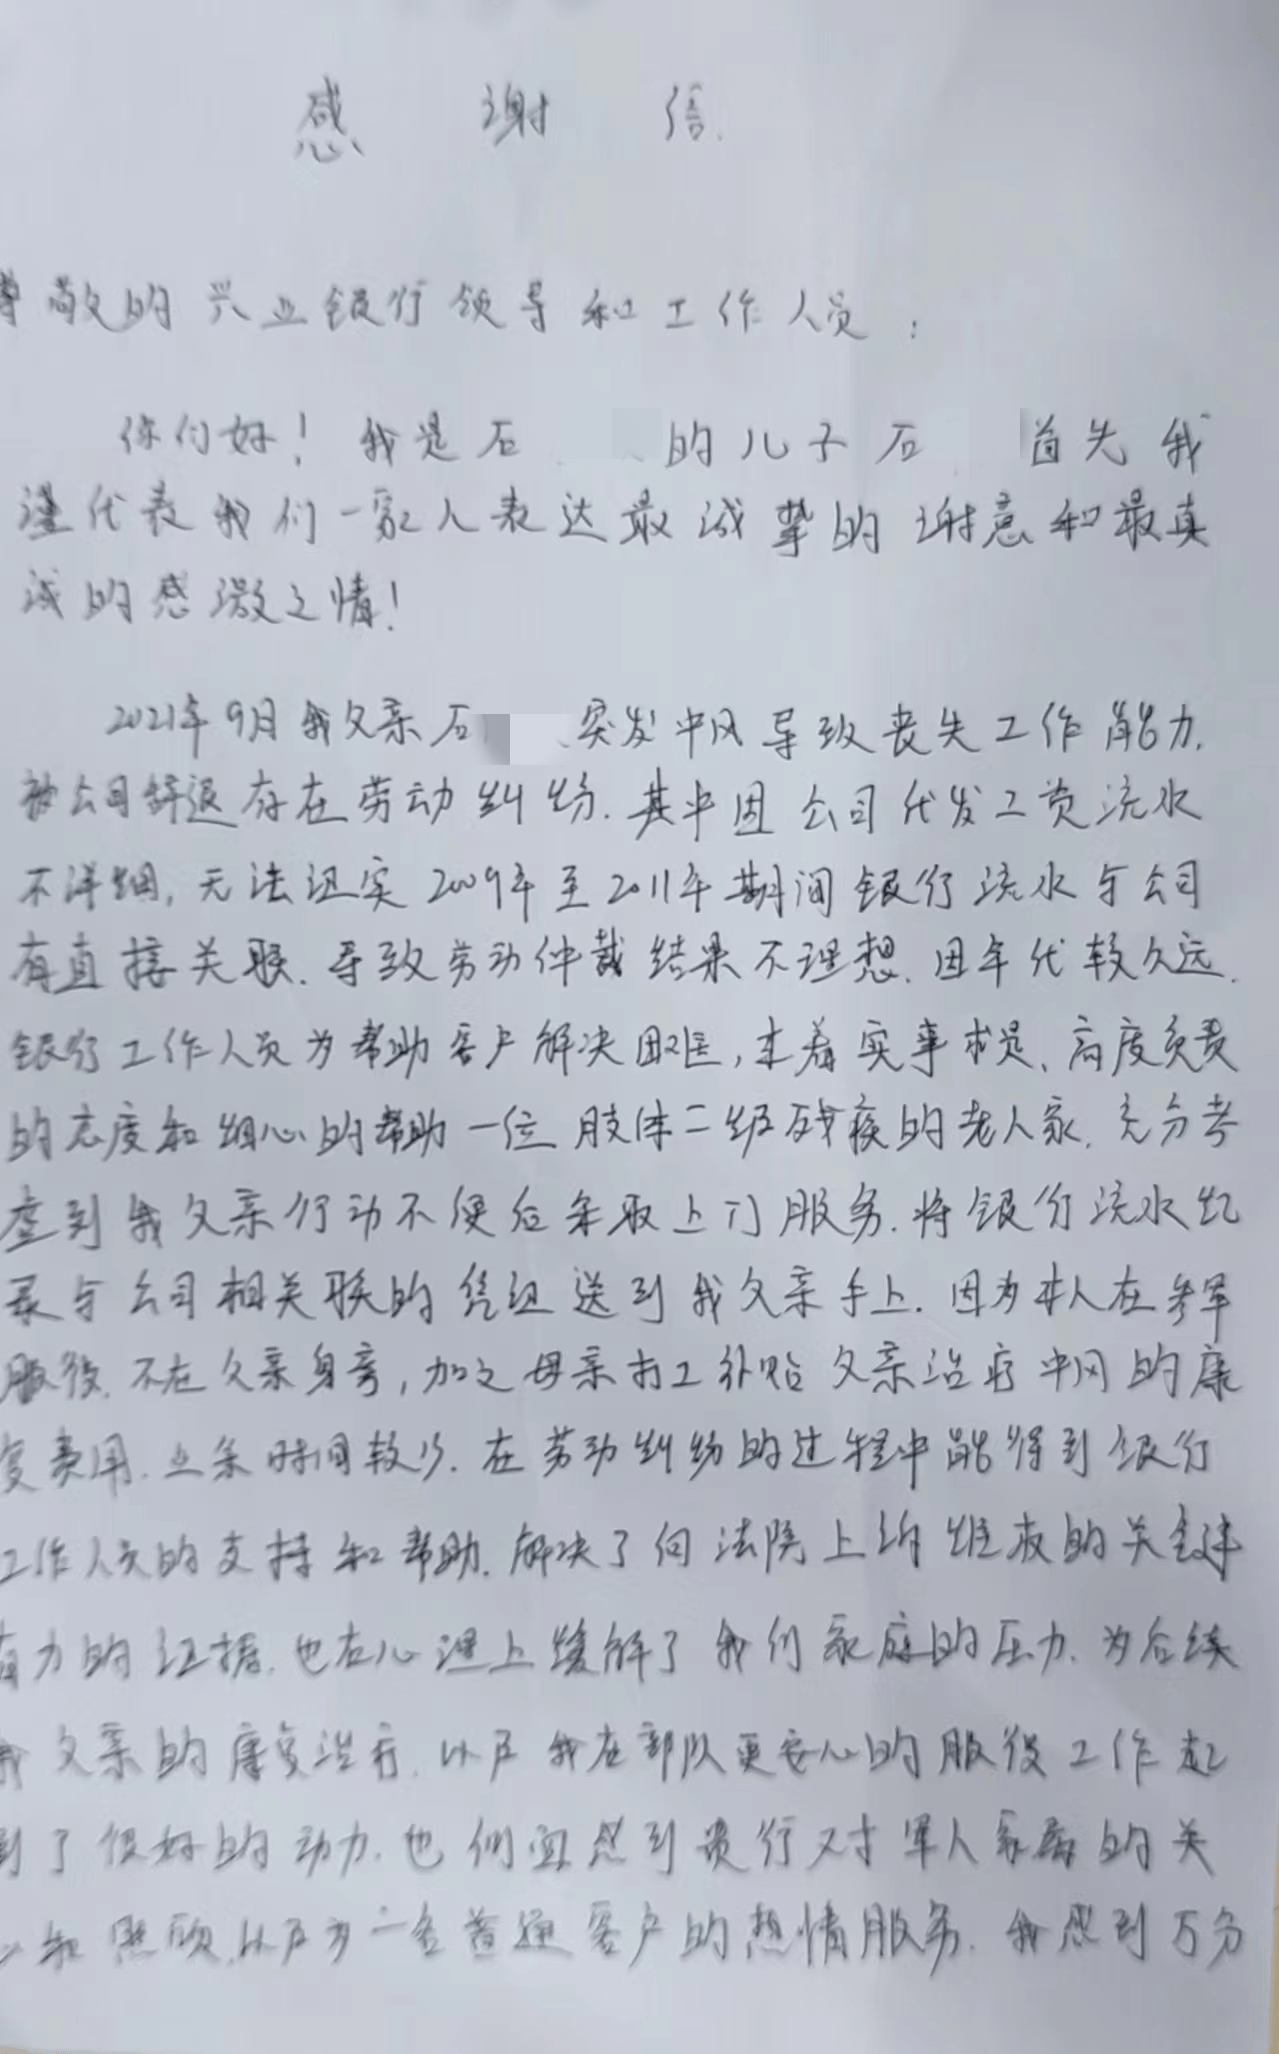 感谢信
尊敬的兴业银行领导和工作人员：
你们好！我是石 的儿子石 首先我
谨代表我们一家人表达最诚挚的谢意和最真
诚的感激之情！
2021年9月我父亲石 突发中风导致丧失工作能力.
被公司辞退存在劳动纠纷.其中因公司代发工资流水
不详细,无法证实2009年至2011年期间银行流水与公司
有直接关联.导致劳动仲裁结果不理想.因年代较久远.
银行工作人员为帮助客户解决困难,本着实事求是、高度负责
的态度和细心的帮助一位肢体二级残疾的老人家.充分考
虑到我父亲行动不便后采取上门服务.将银行流水纪
录与公司相关联的凭证送到我父亲手上.因为本人在参军
服役.不在父亲身旁,加之母亲打工补贴父亲治疗中风的康
复费用.照条时间较少.在劳动纠纷的过程中能得到银行
工作人员的支持和帮助.解决了向法院上诉维权的关键
有力的证据.也在心理上缓解了我们家庭的压力.为后续
我父亲的康复治疗.以及我在部队更安心的服役工作起
到了很好的动力.也侧面感到贵行对军人家属的关
心和照顾.以及为一名普通客户的热情服务.我感到万分